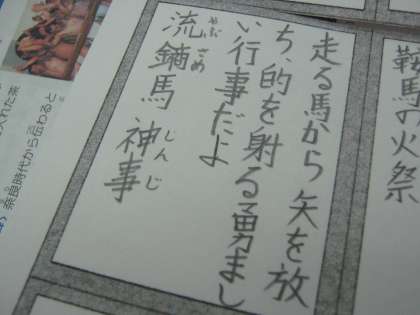 鞍馬の火祭
走る馬から矢を放
ち、的を射る勇まし
い行事だよ
流鏑馬神事
やぶさめ
しんじ
奈良時代から伝わると